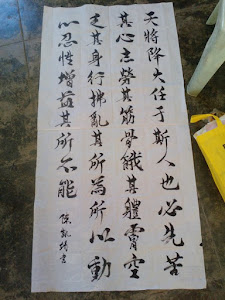 天將降大任于斯人也必先苦
其心志勞其筋骨餓其體膚空
乏其身行拂亂其所為所以動
心忍性增益其所不能